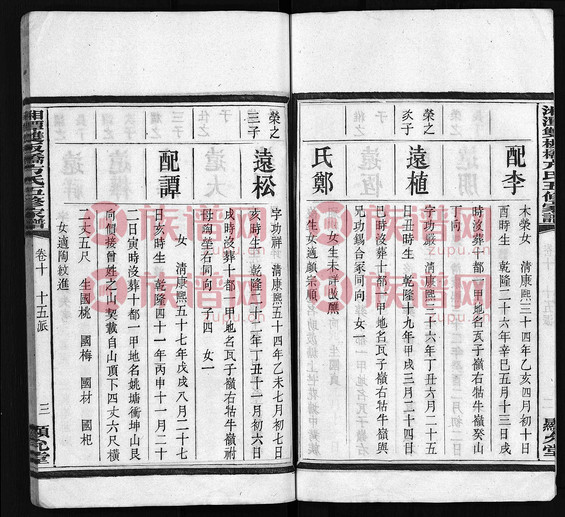 湘潭雙板橋方氏五修家譜
配李
木榮女 清康熙三十四年乙亥四月初十日
酉時生 乾隆二十六年辛巳五月十三日戌
時沒葬十都一甲地名瓦子嶺右牯牛嶺癸山
丁向
榮之
次子
遠植
字功嚴 清康熙三十六年丁丑六月二十五
日丑時生 乾隆十九年甲戌三月二十四日
巳時沒葬十都一甲地名瓦子嶺右牯牛嶺與
兄功錫合冢同向 女一
氏鄭
生女適顏宗順
榮之
三子
遠松
字功祥 清康熙五十四年乙未七月初七日
亥時生 乾隆二十二年丁丑十一月初六日
戌時沒葬十都一甲地名瓦子嶺右牯牛嶺祔
母彌塋右同向 子四 女一
配譚
女 清康熙五十七年戊戌八月二十七
日亥時生 乾隆四十一年丙申十一月二十
二日寅時沒葬十都一甲地名姚塘衝坤山艮
向個接曾姓之山契載自山頂下四丈六尺橫
二丈五尺 生國桃 國梅 國材 國杞
女適陶紋進
湘潭雙板橋方氏五修家譜
卷十 十五派
三
族谱网
zupu.cn